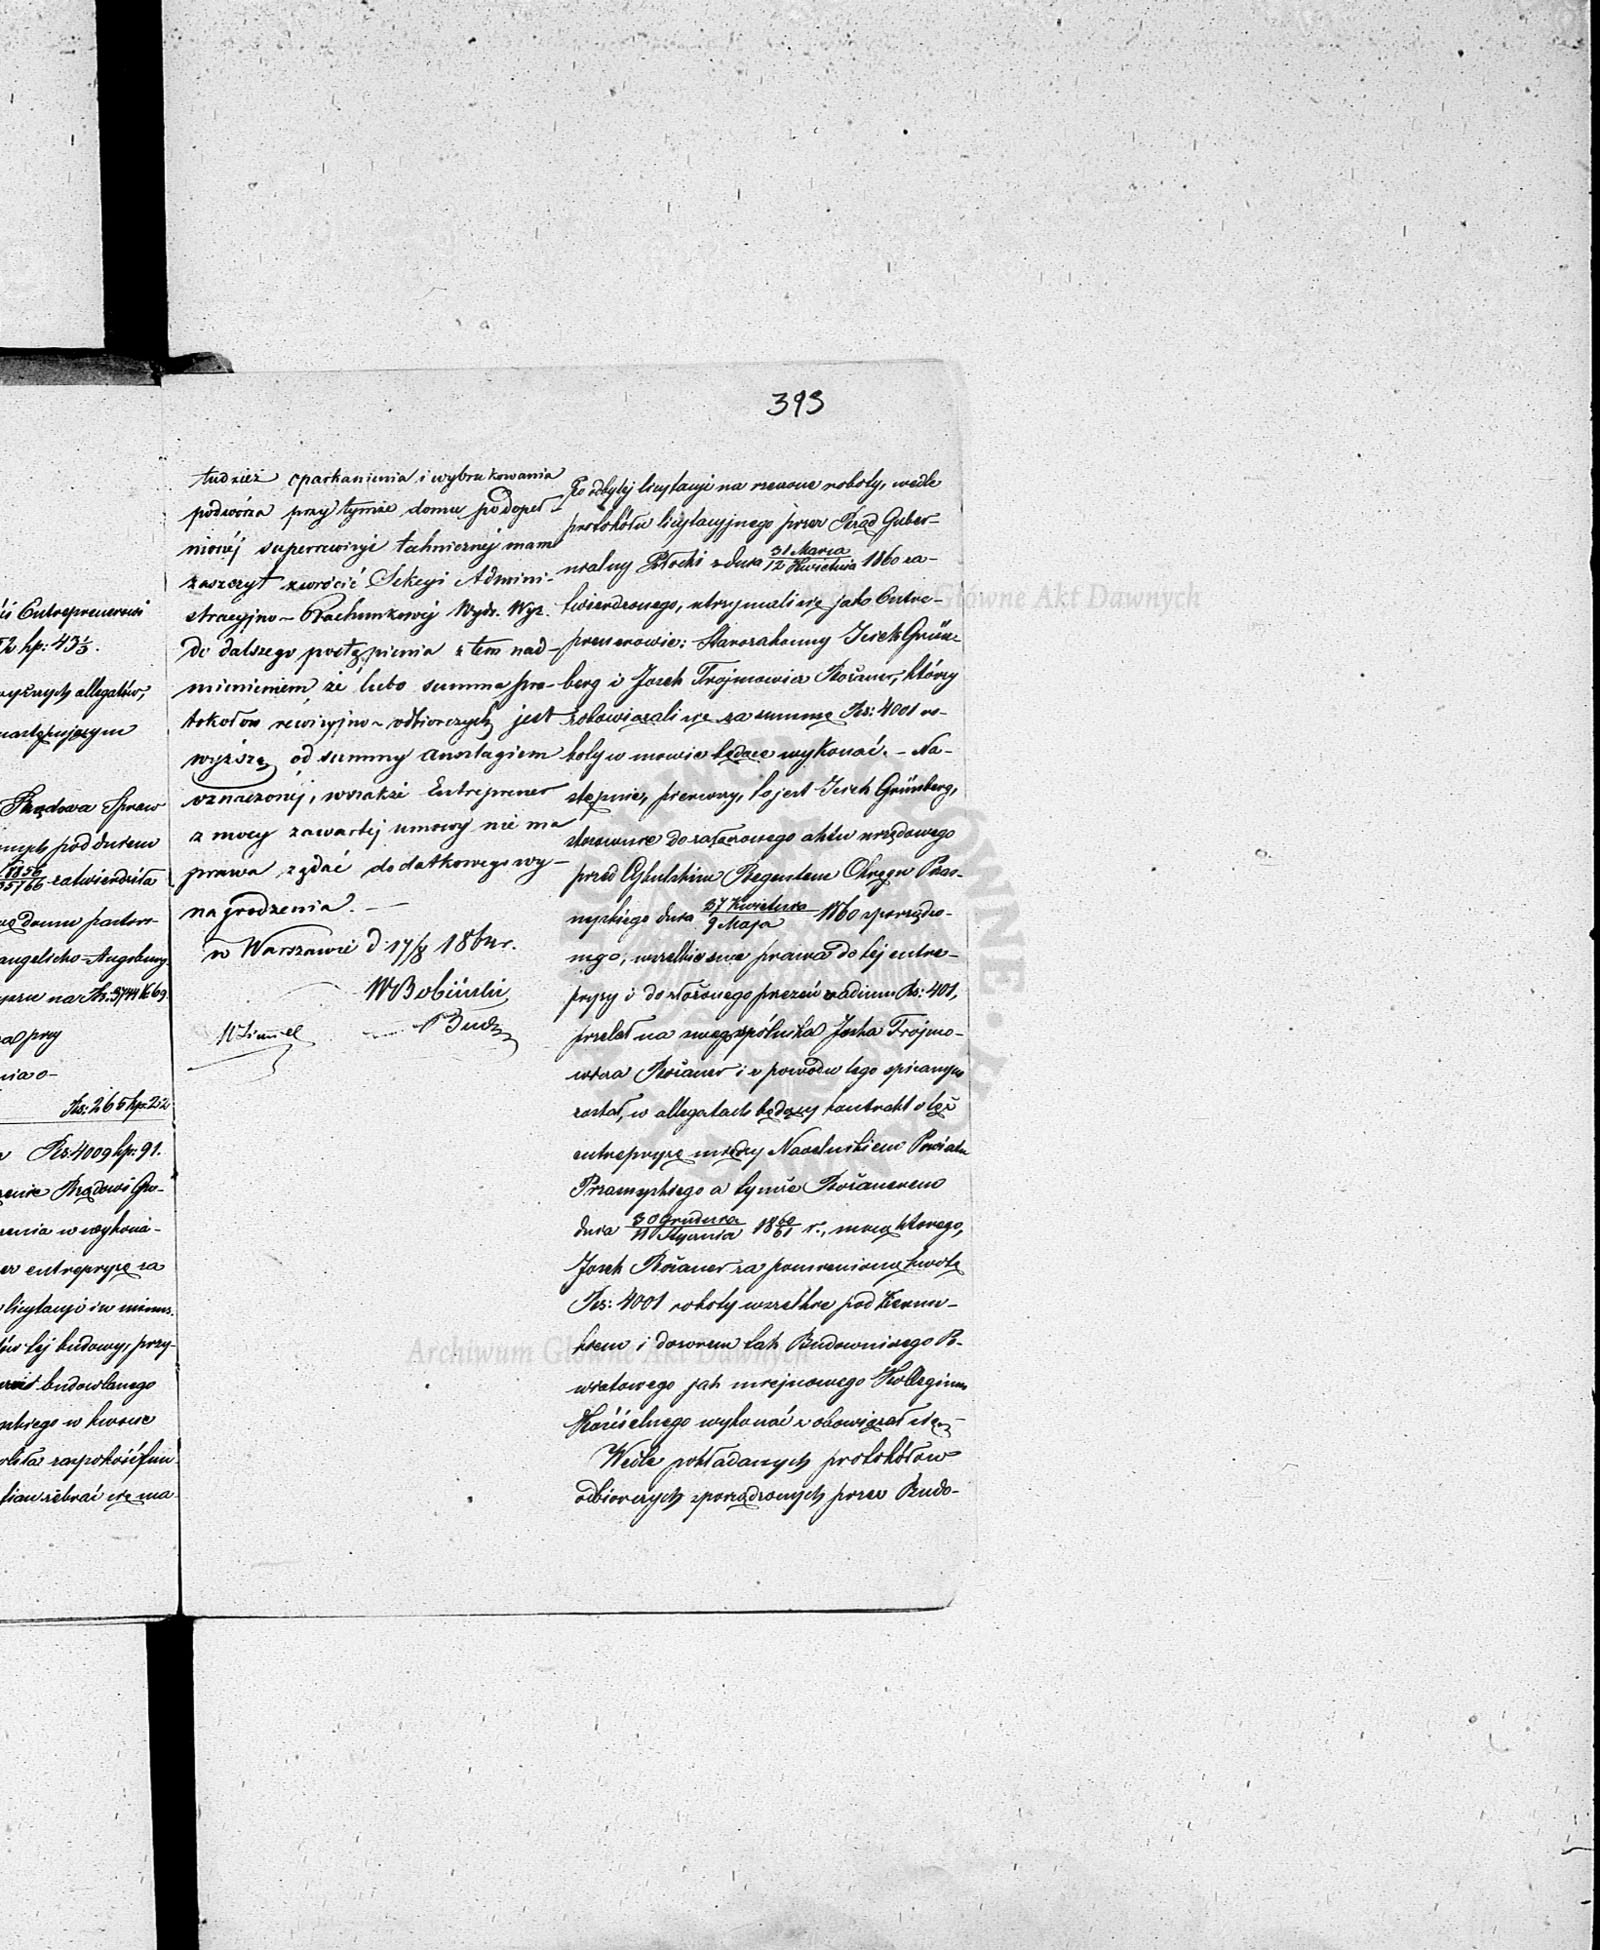 393
tudzież oparkanienia i wybrukowania
podwórza przy tymże domu po dopeł-
nionéj superrewizyi technicznéj mam
zaszczyt zwrócić Sekcyi Admini-
stracyjno-Rachunkowéj Wydz. Wyz.
do dalszego postąpienia z tem nad-
mienieniem że lubo summa pro-
tokołem rewizyjno-odbiorczych jest
wyższą od summy anszlagiem
oznaczonéj, wszakże Entreprener
z mocy zawartéj umowy nie ma
prawa żądać dodatkowego wy-
nagrodzenia. —
w Warszawie d. 17/8 186 r.
Po odbytéj licytacyi na rzeczone roboty, wedle
protokółu licytacyjnego przez Rząd Guber-
nialny Płocki z dnia 31 Marca/12 Kwietnia 1860 za-
twierdzonego, utrzymali się jako Entre-
prenerowie: Starozakonny Icek Grün-
berg i Josek Trojmowicz Rożaner, którzy
zobowiązali się za summę Rs: 4001 ro-
boty w mowie będące wykonać. – Na-
stępnie, pierwszy, to jest Icek Grünberg,
stosownie do załączonego aktu urzędowego
przed Cybulskim Regentem Okręgu Przas-
nyskiego dnia 27 Kwietnia/9 Maja 1860 sporządzo-
nego, wszelkie swe prawa do téj entre-
pryzy i do złożonego przezeń vadium Rs: 401,
przelał na swego spólnika Joska Trojmo-
wicza Rożaner i z powodu tego spisanym
został, w allegatach będący kontrakt o też
entrepryzę między Naczelnikiem Powiatu
Przasnyskiego a tymże Rożanerem
dnia 30 Grudnia/11 Stycznia 1860/61 r., mocą którego,
Josek Rożaner za pomienioną kwotę
Rs: 4001 roboty wszelkie pod kierun-
kiem i dozorem tak Budowniczego Po-
wiatowego jak miejscowego Kollegium
Kościelnego wykonać zobowiązał się –
Wedle pokładanych protokółów
odbiorczych sporządzonych przez Budo-
ś Entreprenerowi
kp: 43⅓.
allegatów,
następującym
Rządowa Spraw
pod dniem
zatwierdziła
domu pastor-
angelicko-Augsburg.
na Rs. 3744 k. 69.
przy
nia o-
Rs: 265 kp: 22
Rs: 4009 kp: 91.
Rządowi Gu-
w wykona-
entrepryzę za
licytacyi in minus.
téj budowy, przy-
budowlanego
w kwocie
zebrać się ma-
Archiwum Główne Akt Dawnych
Archiwum Główne Akt Dawnych